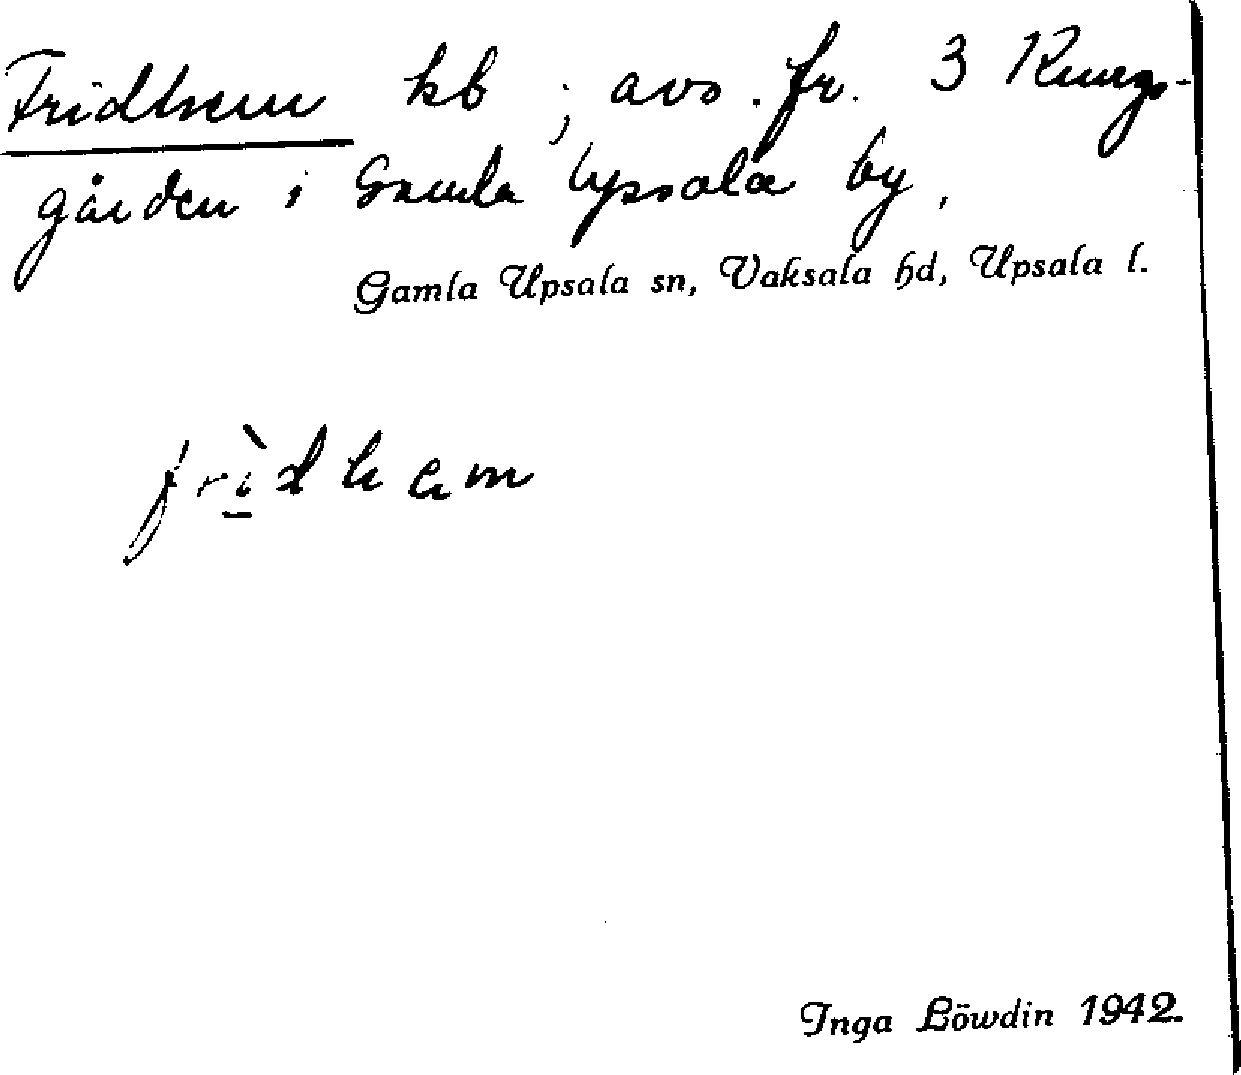 Fridhem hb ; avs. fr. 3 Kungs-
gården i Gamla Upsala by.
Gamla Upsala sn, Vaksala hd, Upsala l.
frìdhem
Inga Löwdin 1942.